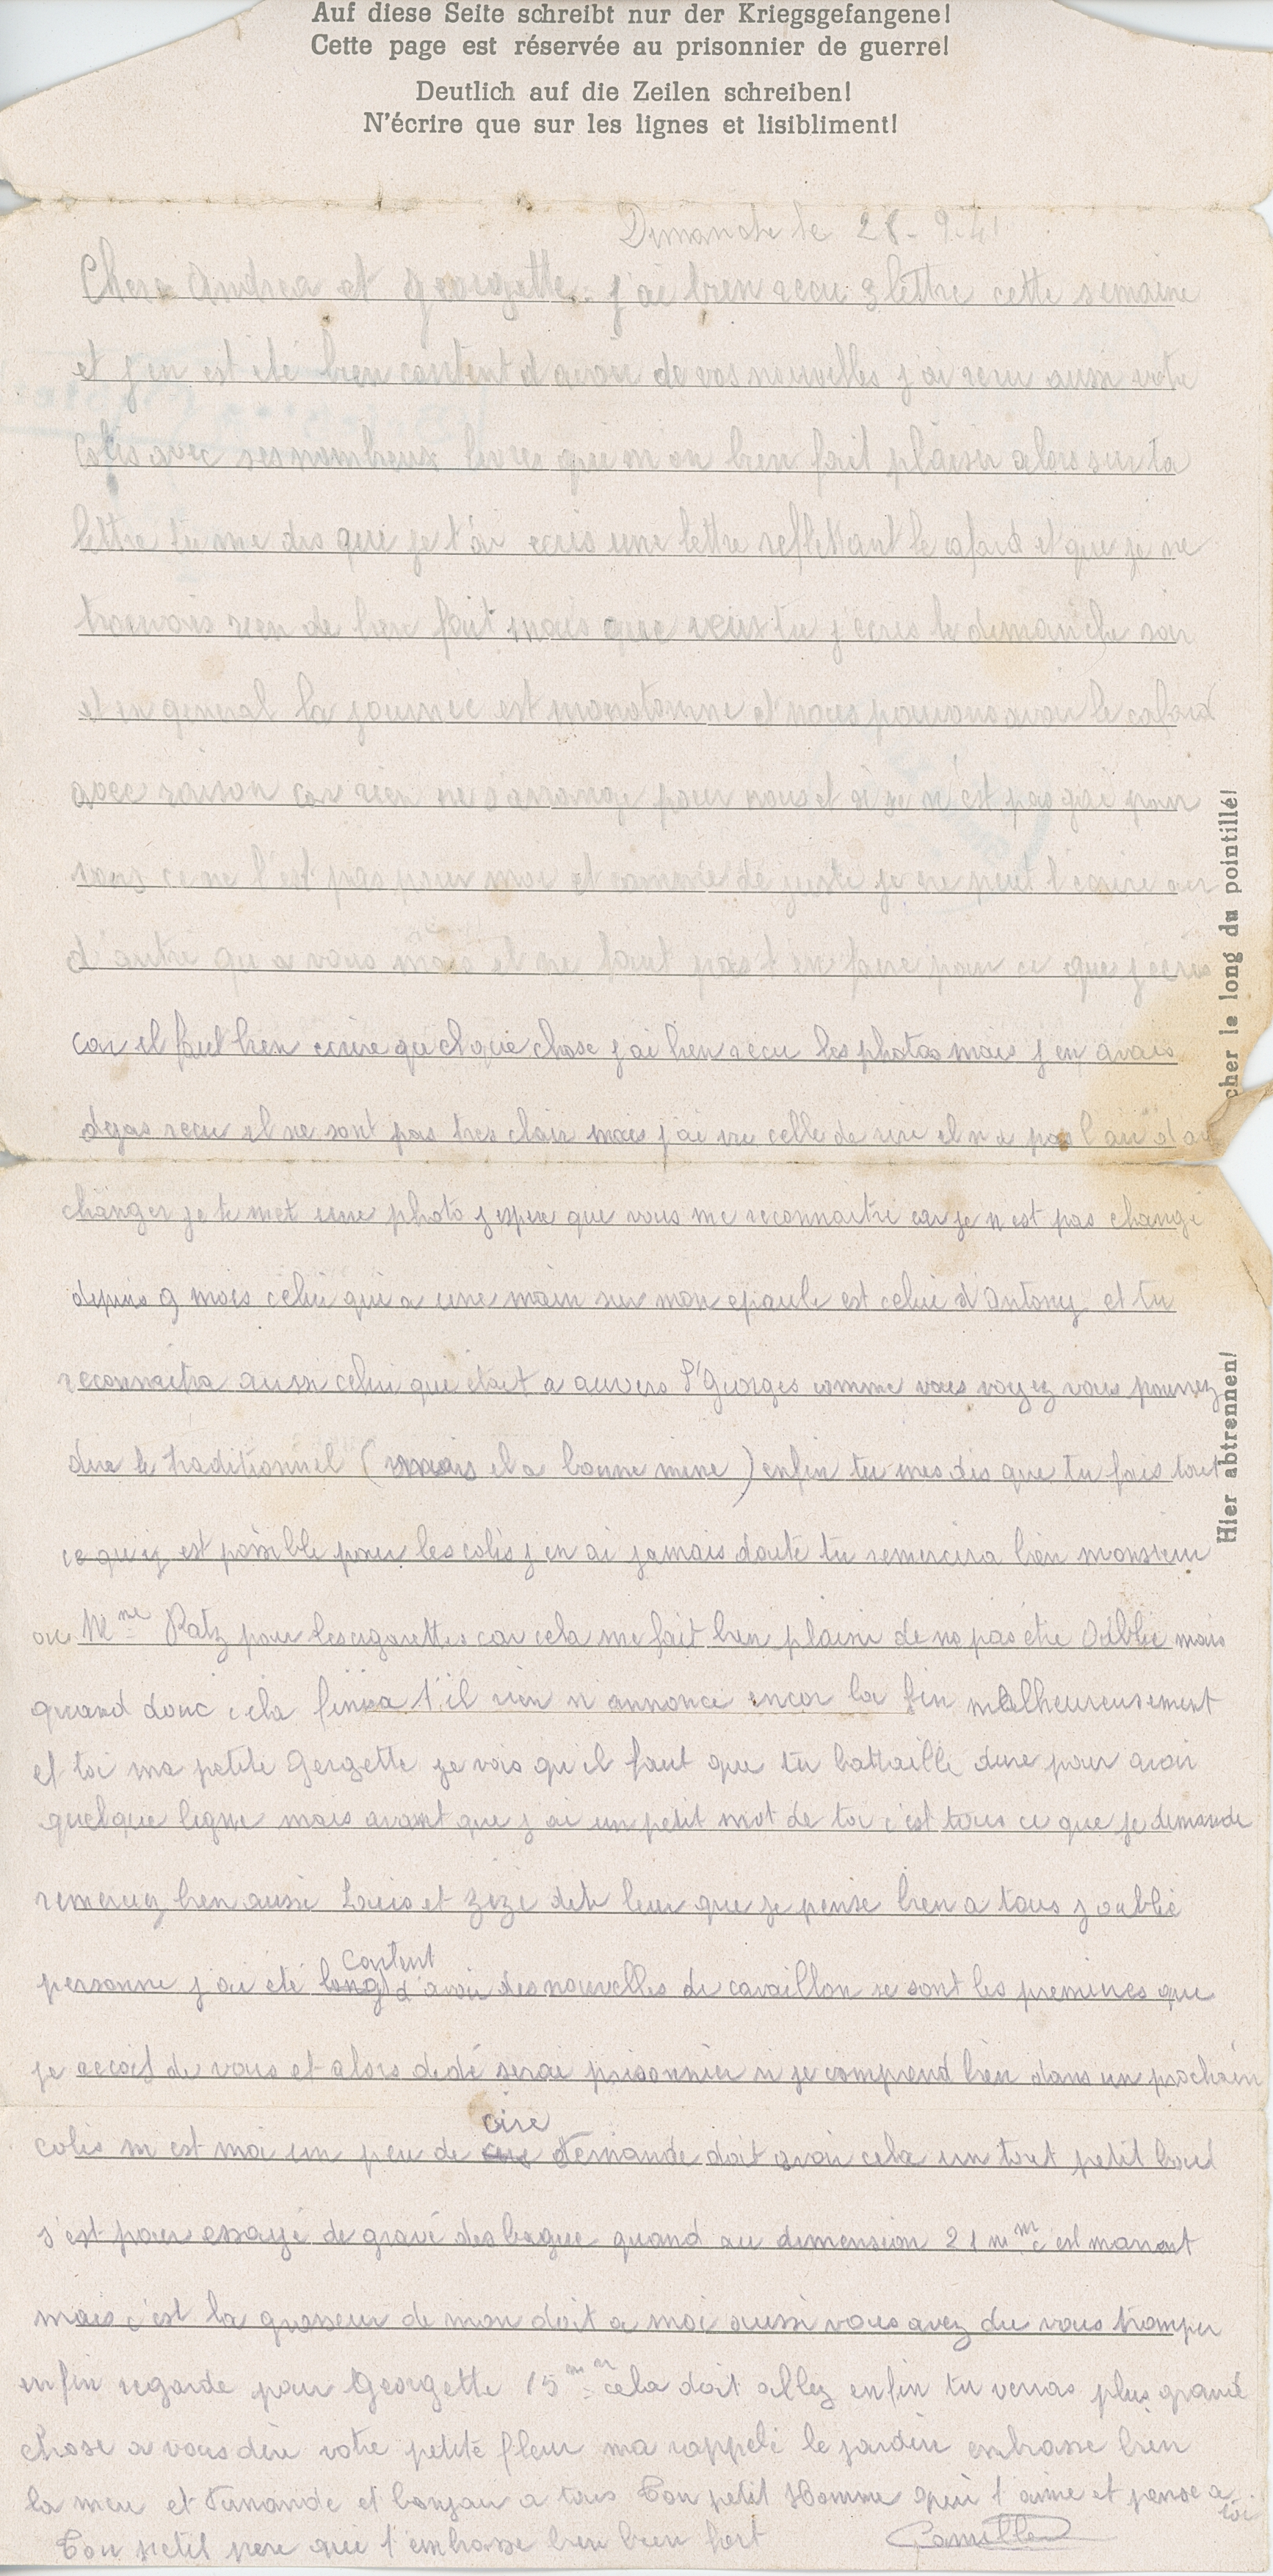 Auf diese Seite schreibt nur der Kriegsgefangene!
Cette page est réservée au prisonnier de guerre!
Deutlich auf die Zeilen schreiben!
N'écrire que sur les lignes et lisibliment!
Dimanche le 28-9-41
Chere Andrea et Georgette. j'ai bien recu 3 lettre cette semaine
et j en est été bien content d avoir de vos nouvelles j ai recu aussi votre
colis avec ses nombreux livres qui m on bien fait plaisir alors sur ta
lettre tu me dis que je t'ai ecris une lettre reflettant le cafard et que je ne
trouvais rien de bien fait mais que veux tu j ecris le dimanche soir
et en general la journée est monotonne et nous pouvons avoir le cafard
avec raison car rien ne s arrange pour nous et si se n'est pas gai pour
vous ce ne l'est pas pour moi et comme de juste je ne peut l ecrire
d autre qu a vous mais il ne faut pas t en faire pour ce que j ecris
car il faut bien ecrire quelque chose j ai bien recu les photos mais j en avais
dejas recu il ne sont pas tres clair mais j ai vu celle de il n a pas l air d
changer je te met une photo j espere que vous me reconnaitre car je n est pas changé
depuis 9 mois celui qui a une main sur mon epaule est celui d'Antony et tu
reconnaitra aussi celui qui était a auvers St Georges comme vous voyez vous pourrez
dire le traditionnel (mais il a bonne mine) enfin tu mes dis que tu fais tout
ce qui y est possible pour les colis j en ai jamais doute tu remercira bien monsieur
ou Mme Ratz pour les cigarettes car cela me fait bien plaisir de ne pas étre Oublié mais
quand donc cela finira t'il rien n annonce encor la fin malheureusement
et toi ma petite Gergette je vois qu il faut que tu battaille dure pour avoir
quelque ligne mais avant que j ai un petit mot de toi c'est tous ce que je demande
remerciez bien aussi Louis et Zeze dite leur que je pense bien a tous j oublie
personne j ai été long content d'avoir des nouvelles de cavaillon se sont les premieres que
je recois de vous et alors dédé serai prisonnier si je comprend bien dans un prochain
colis m est moi un peu de cire Fernande doit avoir cela un tout petit bout
s'est pour essayé de gravé des bague quand au dimension 21 mm c est marrant
mais c'est la grosseur de mon doit a moi aussi vous avez du vous tromper
enfin regarde pour Georgette 15 mm cela doit allez enfin tu verras plus grand
chose a vous dire votre petite fleur ma rappelé le jardin embrasse bien
la mere et Fernande et bonjour a tous Ton petit Homme qui t'aime et pense a toi
Ton petit pere qui t'embrasse bien bien fort Camille
cher le long du pointillé!
Hier abtrennen!